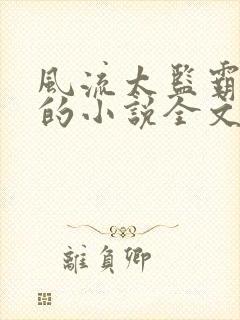 風流太監霸
的小說全文
離負卿